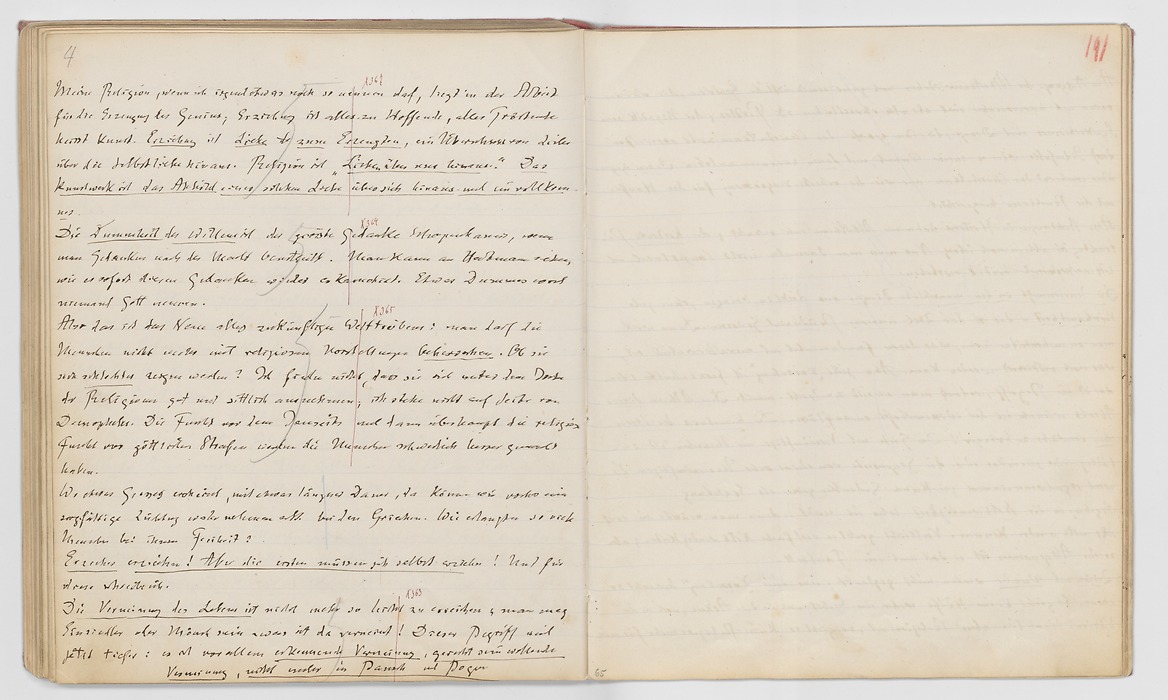 4
191
X 362
Meine Religion, wenn ich irgendetwas noch so nennen darf, liegt in der Arbeit
für die Erzeugung des Genius; Erziehung ist alles zu Hoffende, alles Tröstende
heisst Kunst. Erziehung ist Liebe zum Erzeugten, ein Überschuss von Liebe
über die Selbstliebe hinaus. Religion ist „Lieben über uns hinaus." Das
Kunstwerk ist das Abbild einer solchen Liebe über sich hinaus und ein vollkom-
nes.
X 364
Die Dummheit des Willens ist der grösste Gedanke Schopenhauers, wenn
man Gedanken nach der Macht beurtheilt. Man kann an Hartmann sehen,
wie er sofort diesen Gedanken wieder eskamotirt. Etwas Dummes wird
niemand Gott nennen.
X 365
Also das ist das Neue alles zukünftigen Welttreibens: man darf die
Menschen nicht wieder mit religiösen Vorstellungen beherrschen. Ob sie
sich schlechter zeigen werden? Ich finde nicht, dass sie sich unter dem Joche
der Religionen gut und sittlich ausnehmen; ich stehe nicht auf Seite von
Demopheles. Die Furcht vor dem Jenseits und dann überhaupt die religiöse
Furcht vor göttlichen Strafen werden die Menschen schwerlich besser gemacht
haben.
Wo etwas Grosses erscheint, mit etwas längrer Dauer, da können wir vorher eine
sorgfältige Züchtung wahrnehmen z.B. bei den Griechen. Wie erlangten so viele
Menschen bei ihnen Freiheit?
Erzieher erziehn! Aber die ersten müssen sich selbst erziehn! Und für
diese schreibe ich.
X 363
Die Verneinung des Lebens ist nicht mehr so leicht zu erreichen: man mag
Einsiedler oder Mönch sein – was ist da verneint! Dieser Begriff wird
jetzt tiefer: es ist vor allem erkennende Verneinung, gerecht sein wollende
Verneinung, nicht mehr in Bausch und Bogen
65